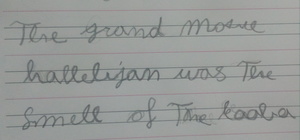 The grand motue
hallelijan was The
Smell of The koola